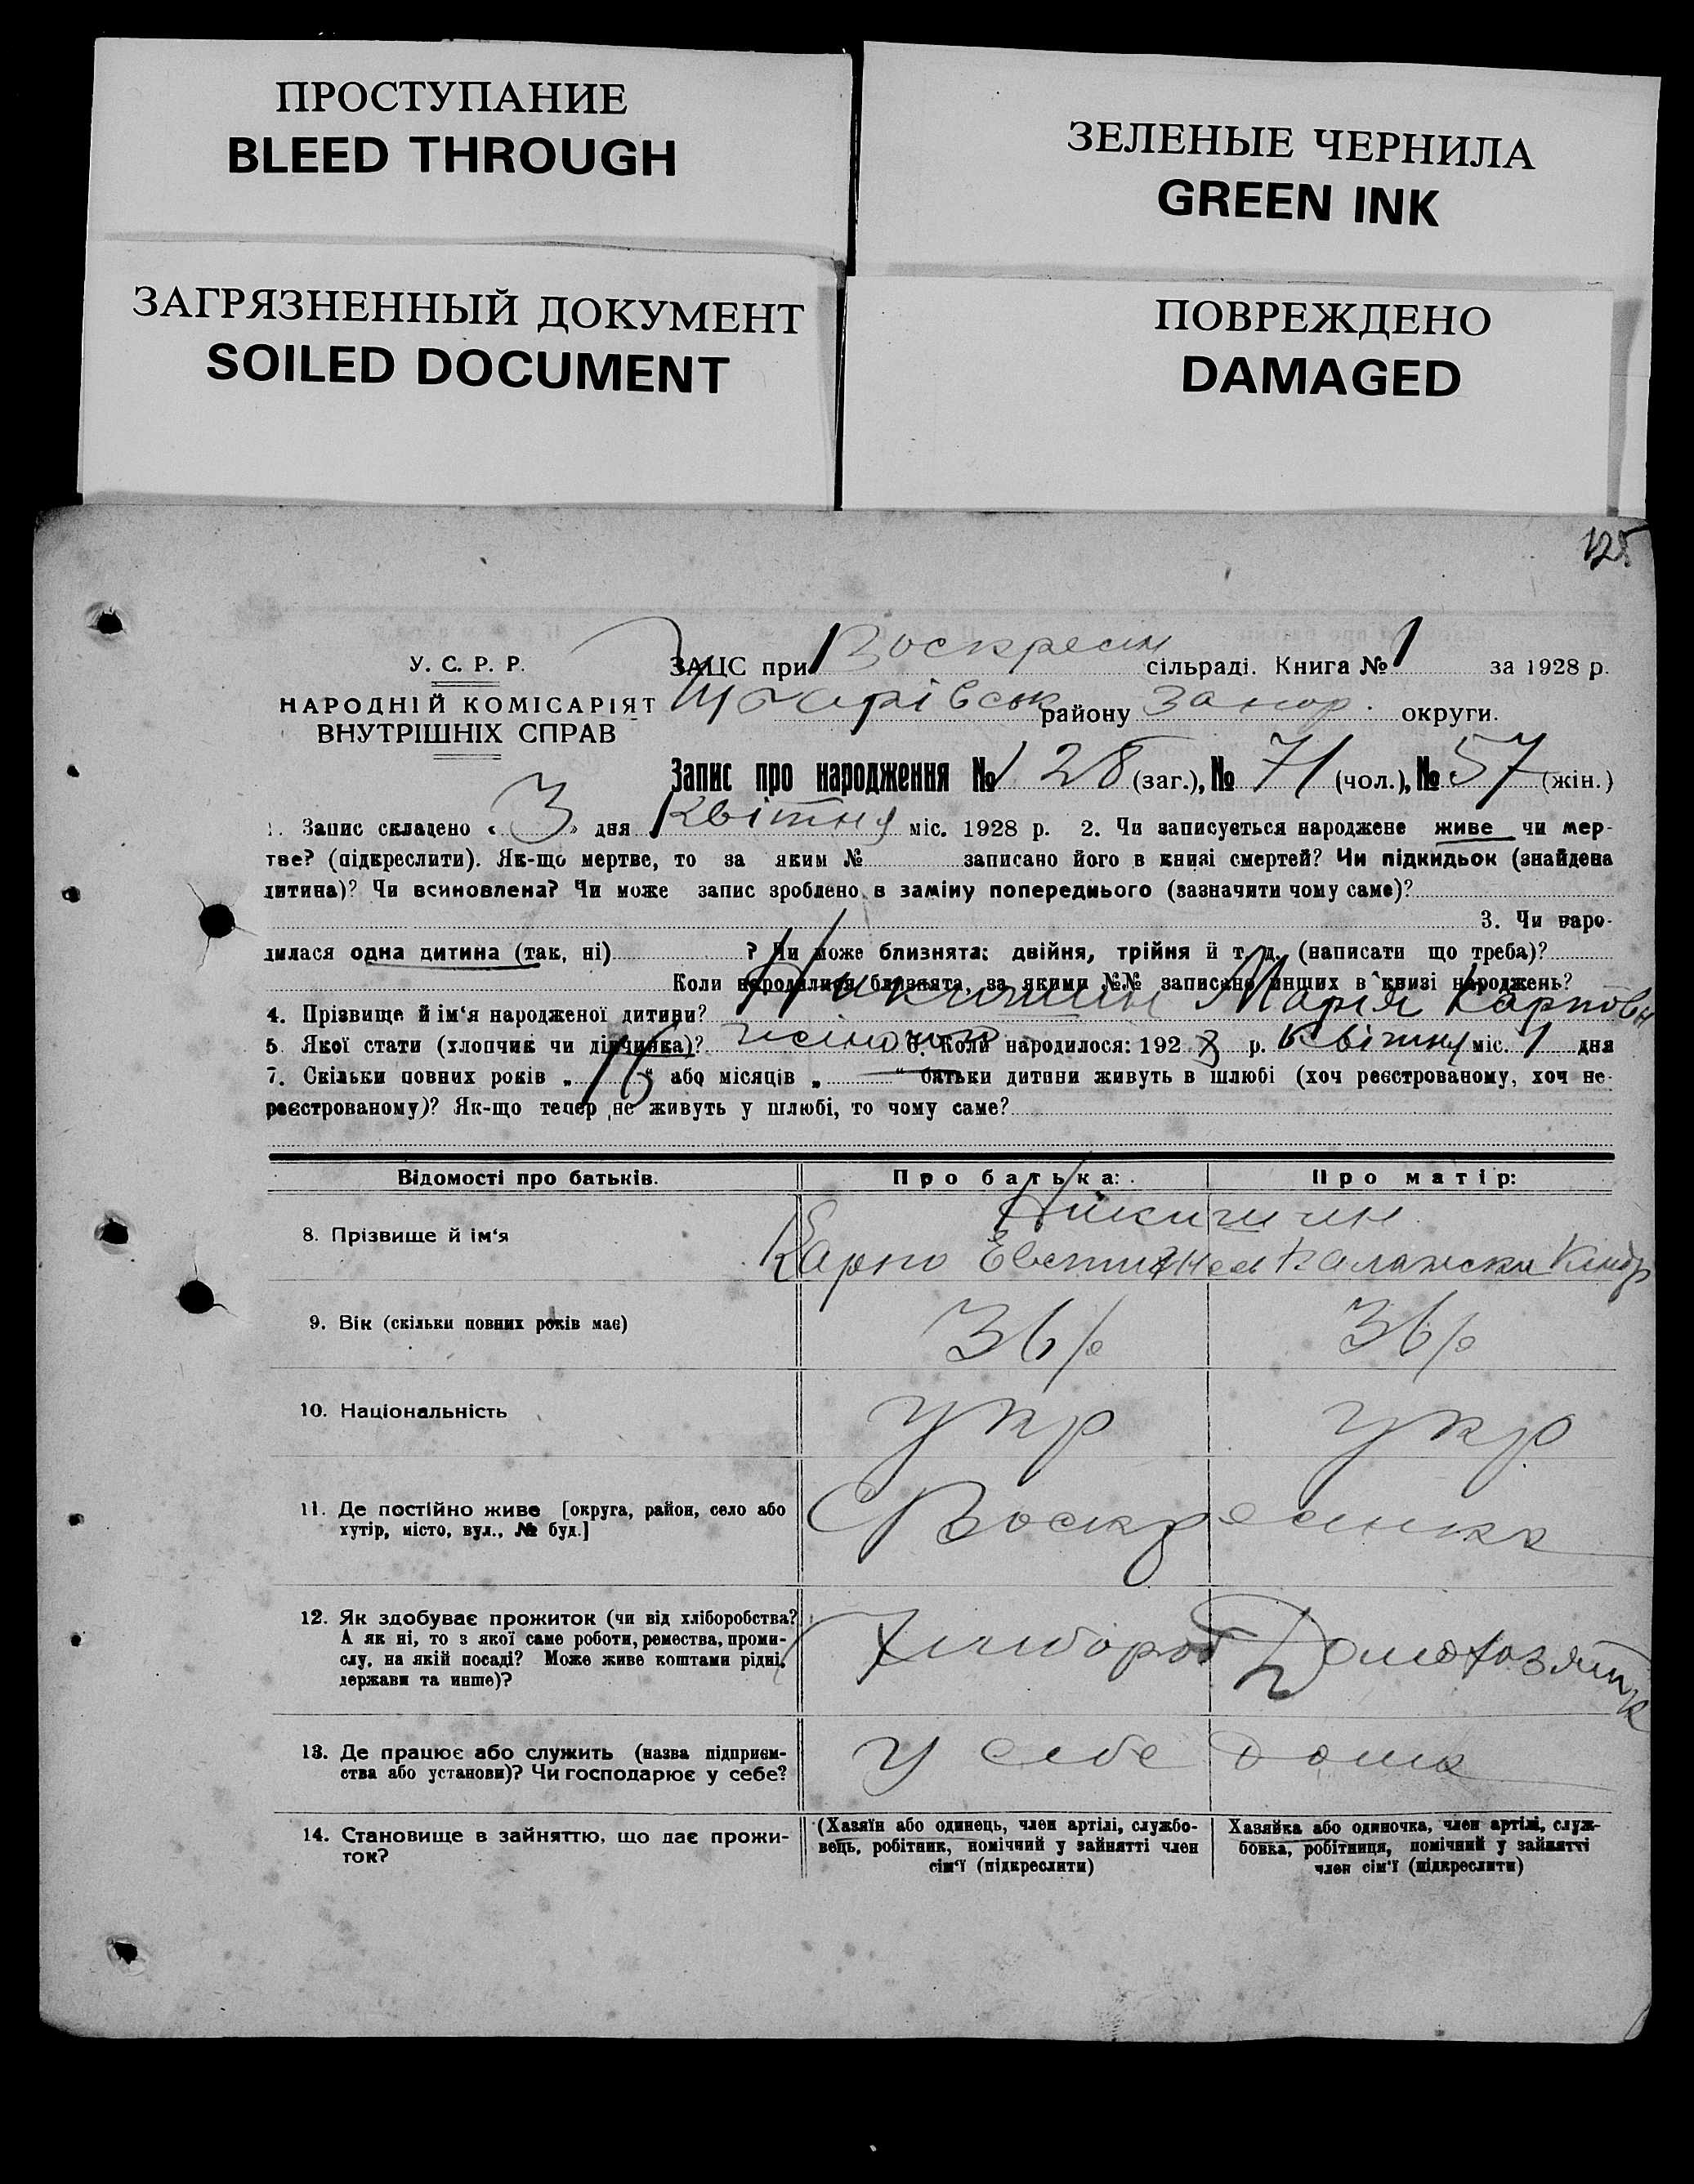 ПРОСТУПАНИЕ
BLEED THROUGH
ЗЕЛЕНЫЕ ЧЕРНИЛА
GREEN INK
ЗАГРЯЗНЕННЫЙ ДОКУМЕНТ
SOILED DOCUMENT
ПОВРЕЖДЕНО
DAMAGED
125
У. С. Р. Р.
НАРОДНІЙ КОМІСАРІЯТ
ВНУТРІШНІХ СПРАВ
ЗАЦС при Воскресен сільраді. Книга № 1 за 1928 р.
району Запор. округи.
Запис про народження № 128 (заг.), № 71 (чол.), № 57 (жін.)
1. Запис складено « 3 » дня Квітня міс. 1928 р. 2. Чи записується народжене живе чи мер-
тве? (підкреслити). Як-що мертве, то за яким № записано його в книзі смертей? Чи підкидьок (знайдена
дитина)? Чи всиновлена? Чи може запис зроблено в заміну попереднього (зазначити чому саме)?
3. Чи наро-
дилася одна дитина (так, ні) ? Чи може близнята: двійня, трійня й т. д. (написати що треба)?
Коли народилися близнята, за якими №№ записано інших в книзі народжень?
4. Прізвище й ім‘я народженої дитини? Марія Карповн
5. Якої стати (хлопчик чи дівчинка)? жіночої 6. Коли народилося: 192 8 р. Квітня міс. 1 дня
7. Скільки повних років „ 16 “ або місяців „ “ батьки дитини живуть в шлюбі (хоч реєстрованому, хоч не-
реєстрованому)? Як-що тепер не живуть у шлюбі, то чому саме?
Відомості про батьків. Про батька: Про матір:
8. Прізвище й ім‘я
Карпо
9. Вік (скільки повних років має) 36 р 36 р
10. Національність укр укр
11. Де постійно живе [округа, район, село або
хутір, місто, вул., № буд.]
С Воскресенка
12. Як здобуває прожиток (чи від хліборобства?
А як ні, то з якої саме роботи, ремества, проми-
слу, на якій посаді? Може живе коштами рідні,
держави та инше)?
Хлибороб Домохозяйка
13. Де працює або служить (назва підприєм-
ства або установи)? Чи господарює у себе?
у себе дома
14. Становище в зайняттю, що дає прожи-
ток?
(Хазяїн або одинець, член артілі, службо-
вець, робітник, помічний у зайнятті член
сім‘ї (підкреслити)
Хазяйка або одиночка, член артілі, служ-
бовка, робітниця, помічний у зайнятті
член сім‘ї (підкреслити)